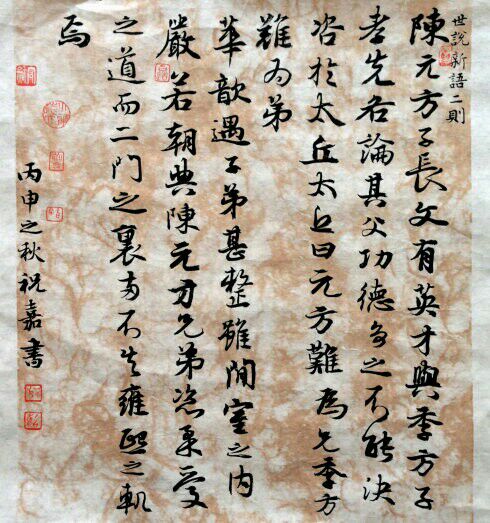 世說新語二則
陳元方子長文有英才與季方子
孝先各論其父功德爭之不能決
咨於太丘太丘曰元方難為兄季方
難為弟
華歆遇子弟甚整雖閒室之內
嚴若朝典陳元方兄弟恣柔愛
之道而二門之裏兩不失雍熙之軌
焉
丙申之秋祝嘉書